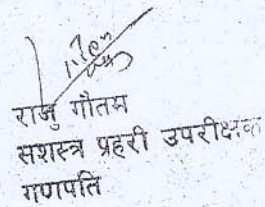 राजु गौतम
सशस्त्र प्रहरी उपरीक्षक
गणपति